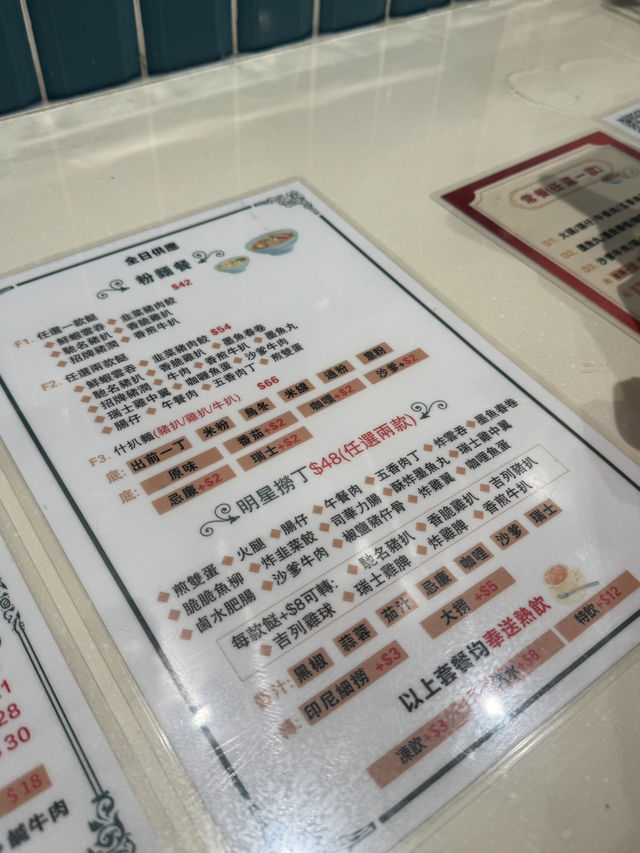 全日供應
粉麵餐
$42
F1. 任選一款餸
鮮蝦雲吞 韭菜豬肉餃
馳名豬扒 香脆雞扒
招牌豬潤 香煎牛扒
$54
F2. 任選兩款餸
鮮蝦雲吞 韭菜豬肉餃 墨魚春卷
馳名豬扒 香脆雞扒 墨魚丸
招牌豬潤 牛肉 香煎牛扒 沙爹牛肉
瑞士雞中翼 咖喱魚蛋 煎雙蛋
腸仔 午餐肉 五香肉丁
$66
F3. 什扒麵(豬扒/雞扒/牛扒)
底: 出前一丁 米粉 烏冬 米線 通粉 意粉
底: 原味 番茄+$2 咖喱+$2 沙爹+$2
忌廉+$2 瑞士+$2
明星撈丁$48(任選兩款)
煎雙蛋 火腿 腸仔 午餐肉 五香肉丁 炸雲吞 墨魚春卷
脆脆魚柳 炸韭菜餃 司華力腸 酥炸墨魚丸 瑞士雞中翼
鹵水肥腸 沙爹牛肉 椒鹽豬仔骨 炸雞翼 咖喱魚蛋
每款餸+$8可轉: 馳名豬扒 香脆雞扒 吉列豬扒
吉列雞球 瑞士雞髀 炸雞髀 香煎牛扒
汁: 黑椒 蒜蓉 茄汁 忌廉 咖喱 沙爹 瑞士
印尼細撈+$3 大撈+$5
以上套餐均奉送熱飲
凍飲+$3 冰+$8 特飲+$12
常餐(任選一款)
D1.
D2.
D3.
28
30
$18
鹹牛肉